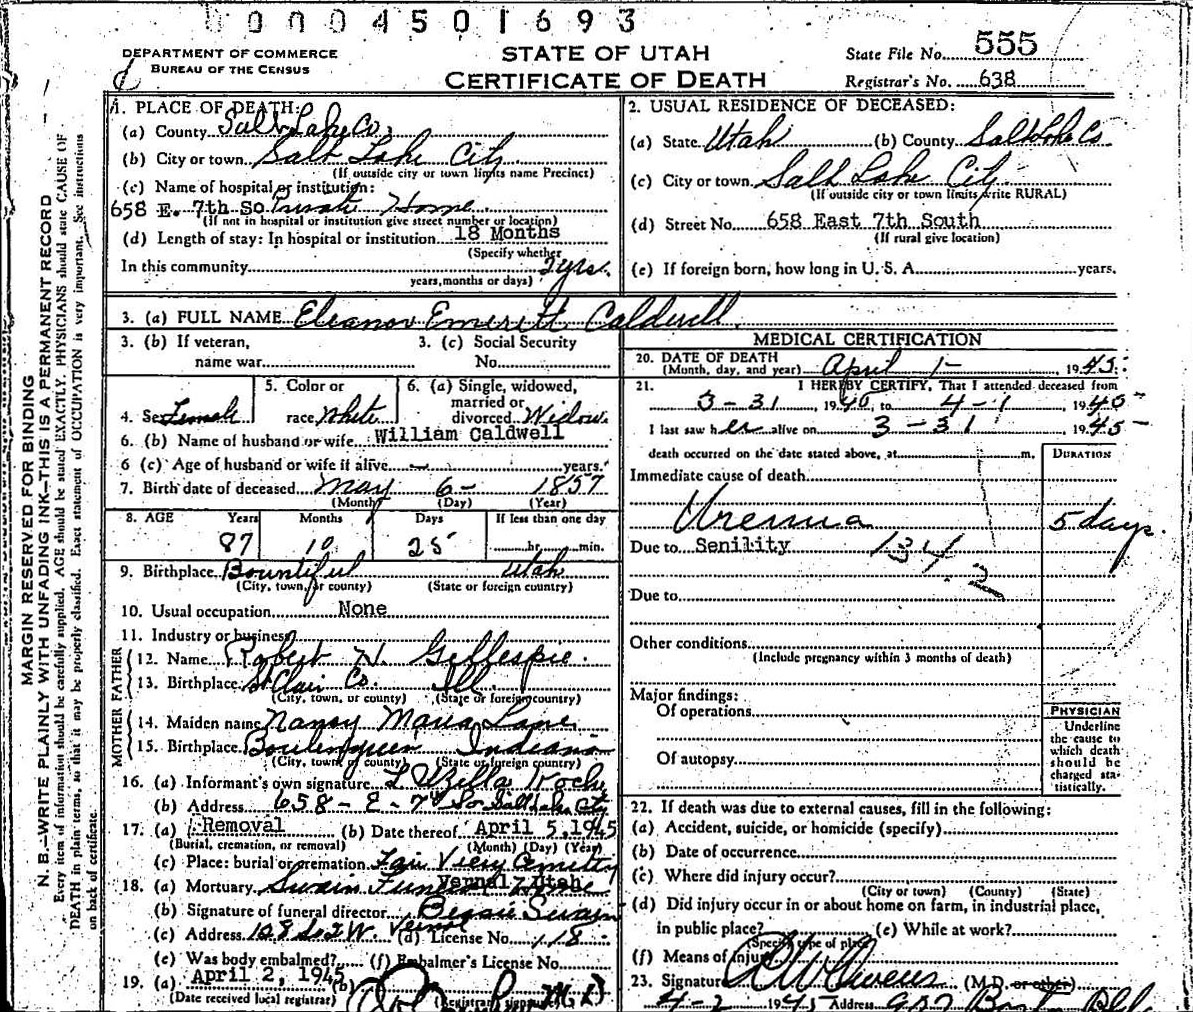 0004501693
DEPARTMENT OF COMMERCE
BUREAU OF THE CENSUS
STATE OF UTAH
CERTIFICATE OF DEATH
State File No. 555
Registrar's No. 638
MARGIN RESERVED FOR BINDING
N. B.—WRITE PLAINLY WITH UNFADING INK—THIS IS A PERMANENT RECORD
Every item of information should be carefully supplied. AGE should be stated EXACTLY. PHYSICIANS should state CAUSE OF
DEATH in plain terms, so that it may be properly classified. Exact statement of OCCUPATION is very important. See instructions
on back of certificate.
1. PLACE OF DEATH:
(a) County Salt Lake Co.
(b) City or town Salt Lake City
(If outside city or town limits name Precinct)
(c) Name of hospital or institution:
658 E. 7th So Private Home
(If not in hospital or institution give street number or location)
(d) Length of stay: In hospital or institution 18 Months
(Specify whether
In this community 2 yrs.
years, months or days)
2. USUAL RESIDENCE OF DECEASED:
(a) State Utah (b) County Salt Lake Co
(c) City or town Salt Lake City
(If outside city or town limits write RURAL)
(d) Street No. 658 East 7th South
(If rural give location)
(e) If foreign born, how long in U. S. A. years.
3. (a) FULL NAME Eleanor Emerett Caldwell
3. (b) If veteran,
name war
3. (c) Social Security
No.
4. Sex Female
5. Color or
race White
6. (a) Single, widowed,
married or
divorced Widow
6. (b) Name of husband or wife William Caldwell
6 (c) Age of husband or wife if alive years.
7. Birth date of deceased May 6- 1857
(Month) (Day) (Year)
8. AGE Years Months Days If less than one day
87 10 25 hr. min.
9. Birthplace Bountiful Utah
(City, town, or county) (State or foreign country)
10. Usual occupation None
11. Industry or business
FATHER
12. Name Robert N. Gillespie
13. Birthplace St Clair Co. Ill.
(City, town, or county) (State or foreign country)
MOTHER
14. Maiden name Nancy Maria Lane
15. Birthplace Indiana
(City, town, or county) (State or foreign country)
16. (a) Informant's own signature
(b) Address 658-E-7th So Salt Lake City
17. (a) Removal (b) Date thereof April 5, 1945
(Burial, cremation, or removal) (Month) (Day) (Year)
(c) Place: burial or cremation Fair View Cemetery
Vernal, Utah
18. (a) Mortuary Swain Funeral Home
(b) Signature of funeral director Bessie Swain
(c) Address 108 So 2 W. Vernal (d) License No. 118
(e) Was body embalmed? (f) Embalmer's License No.
19. (a) April 2, 1945 (b)
(Date received local registrar) (Registrar's signature) M.D.
MEDICAL CERTIFICATION
20. DATE OF DEATH
(Month, day, and year) April 1- 1945
21. I HEREBY CERTIFY, That I attended deceased from
3-31, 1945, to 4-1 1945
I last saw her alive on 3-31 1945
death occurred on the date stated above, at m.
DURATION
Immediate cause of death
Uremia 5 days.
Due to Senility 134.2
Due to
Other conditions
(Include pregnancy within 3 months of death)
Major findings:
Of operations
Of autopsy
PHYSICIAN
Underline
the cause to
which death
should be
charged sta-
tistically.
22. If death was due to external causes, fill in the following:
(a) Accident, suicide, or homicide (specify)
(b) Date of occurrence
(c) Where did injury occur?
(City or town) (County) (State)
(d) Did injury occur in or about home on farm, in industrial place,
in public place? (e) While at work?
(Specify type of place)
(f) Means of injury
23. Signature Owens (M.D. or other)
4-2 1945 Address